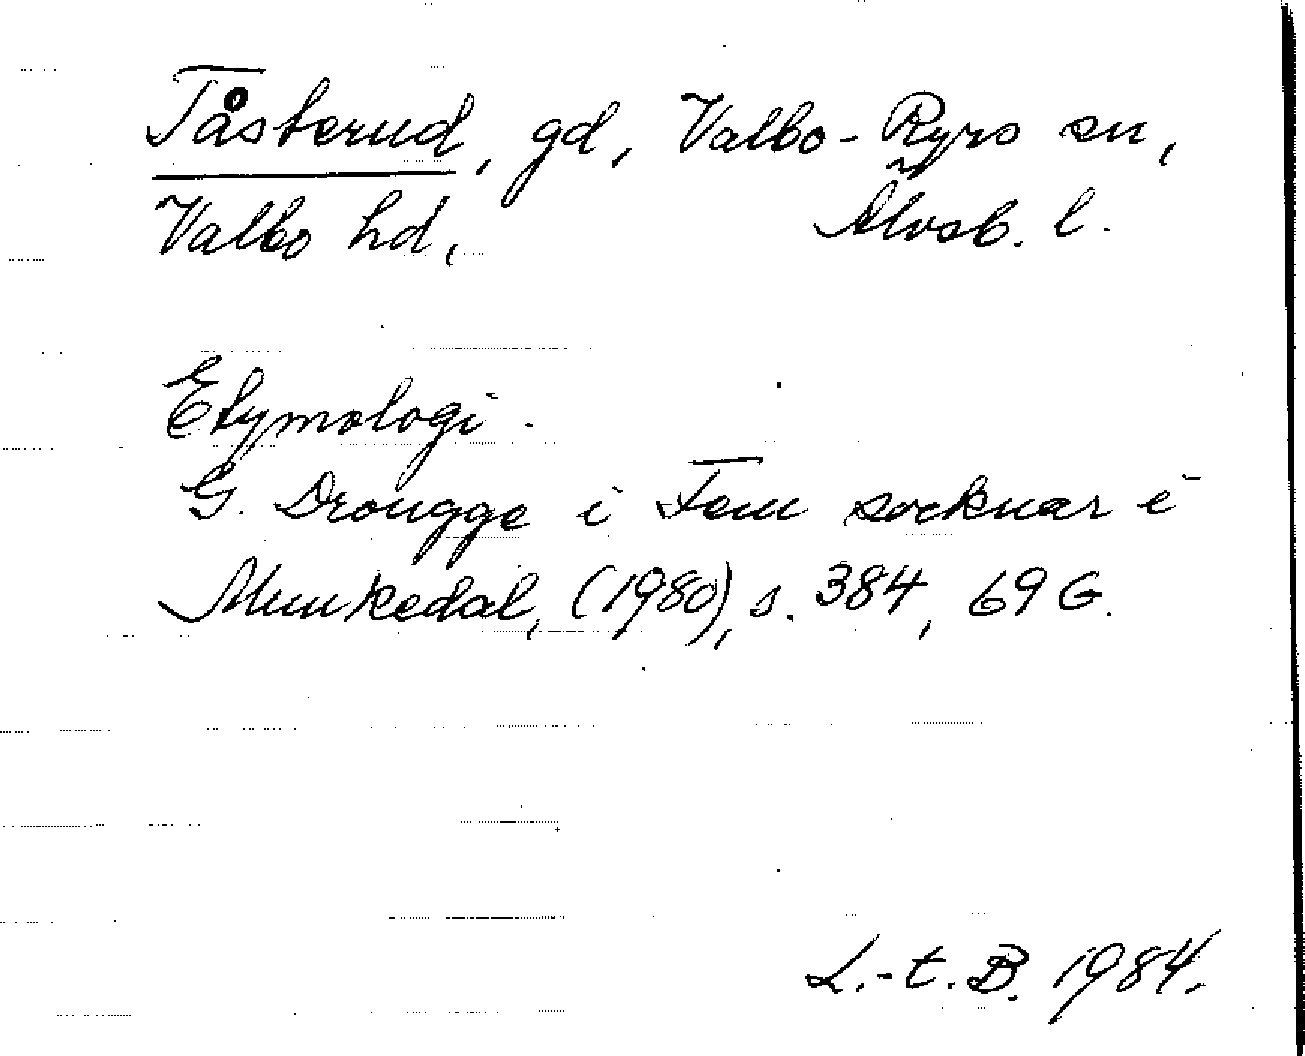 Tåsterud, gd, Valbo-Ryrs sn,
Valbo hd, Älvsb. l.
Etymologi.
G. Drougge i Fem socknar i
Munkedal, (1980), s. 384, 696.
L.-t. B. 1984.